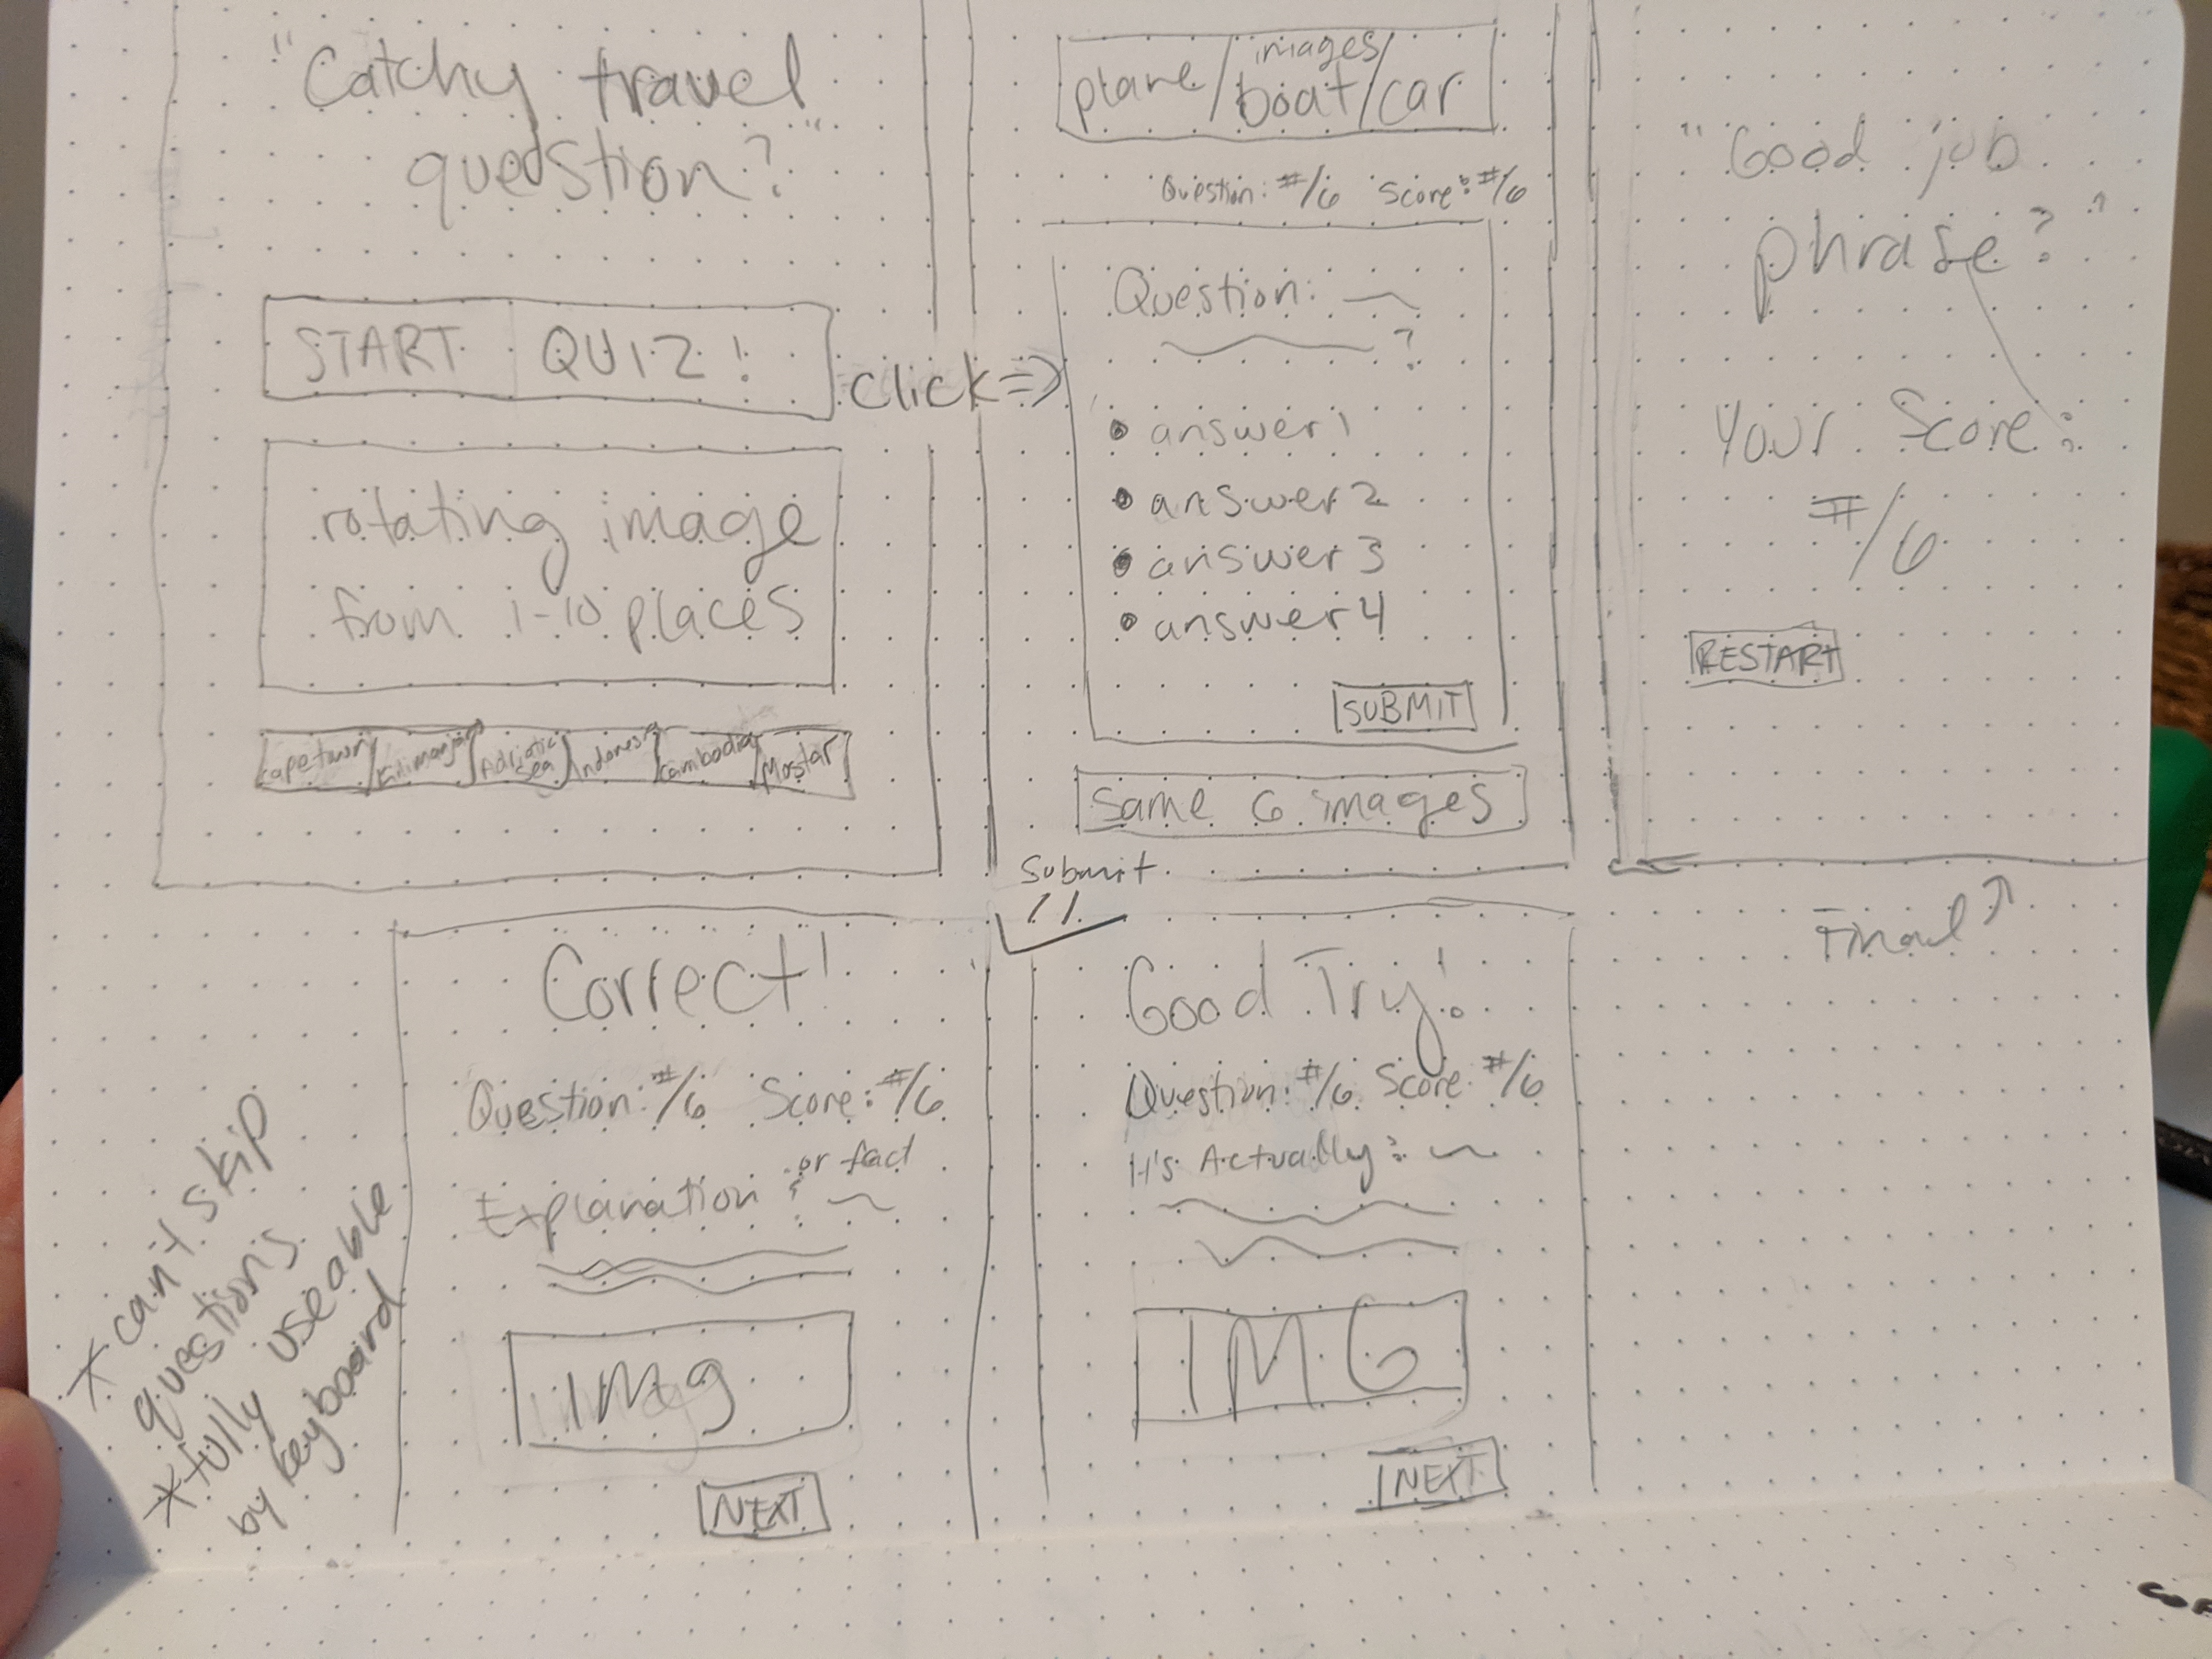 "Catchy travel
question?"
START QUIZ!
click =>
rotating image
from 1-10 places
capetown/Kilimanjaro/Adriatic Sea/Indonesia/Cambodia/Mostar
images
plane/boat/car
Question: #/6 Score: #/6
Question:
?
• answer 1
• answer 2
• answer 3
• answer 4
SUBMIT
same 6 images
Submit
"Good job
phrase?"
Your Score:
#/6
RESTART
Final ↗
Correct!
Question: #/6 Score: #/6
or fact
Explanation:
IMg
NEXT
Good Try!
Question: #/6 Score: #/6
It's Actually:
IMG
NEXT
* can't skip
questions
* fully useable
by keyboard